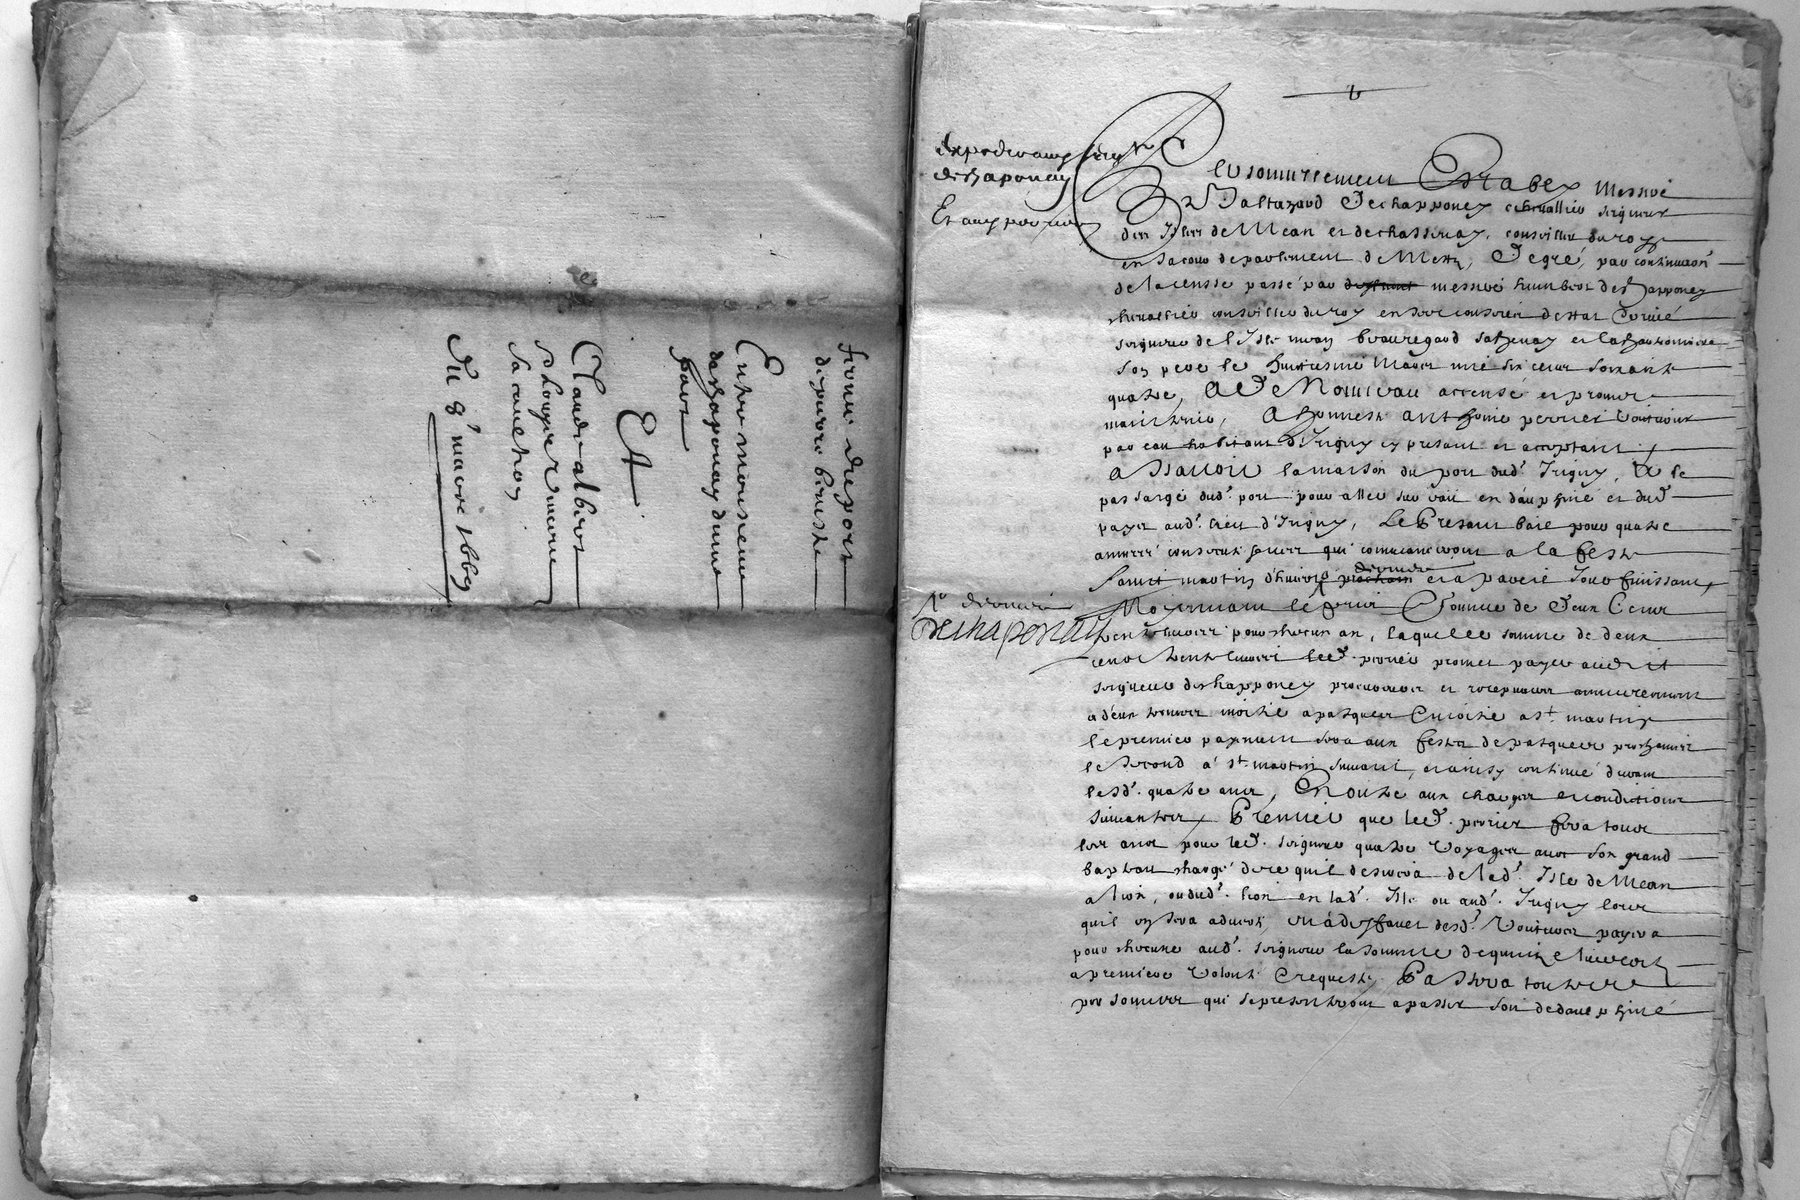 ferme du port
de pierre beniste
Entre monsieur
de chaponay d'une
part
Et
Claude albert
philouze &
sa caution
du 8e mars 1669
Expedié aux srs
de chaponay
Et aux perrier
personnellement Establys messire
Baltazard De chapponey chevallier seigneur
des Isles de Mean et de chassenay, conseiller du roy
en sa cour de parlement de Metz, De gré, par continuaon
de la cense passé par deffunct messire humbert de chapponey
chevallier conseiller du roy en ses conseils destat Privé
seigneur de l'Isle mean beauregard
son pere le huictiesme May mil six cens soixante
quatre, A De Nouveau accensé et promet
maintenir, A honneste anthoine perrier voiturier
par eau habitant d'Irigny cy present et acceptant
assavoir la maison du port dud. Irigny, & le
passage dud. port pour aller sur eau en dauphiné et dud.
payer aud. lieu d'Irigny, Le Present bail pour quatre
années consecutives qui commenceront a la feste
sainct martin d'hiver prochain et a pareil jour finissant
Moyennant le prix & somme de Deux Cens
trente livres pour chacun an, laquelle somme de deux
cens trente livres led. perrier promet payer audit
seigneur de chapponey annuellement
a deux termes moitié a pasques & moitié a st. martin
le premier payement sera aux festes de pasques prochaines
le second a st. martin suivant, et ainsy continué durant
lesd. quatre ans, En outre aux charges et conditions
suivantes Premier que led. perrier fera tous
les ans pour led. seigneur quatre voyages avec son grand
batteau chargé de ce qu'il desirera de lad. Isle de Mean
a lion, ou dud. lion en lad. Isle ou aud. Irigny lors
qu'il en sera adverti, et a deffaut desd. voitures payera
pour chacune aud. seigneur la somme de quinze livres
a premiere volonté & requeste Passera toutes
personnes qui se presenteront a passer soit de dauphiné
de chaponay